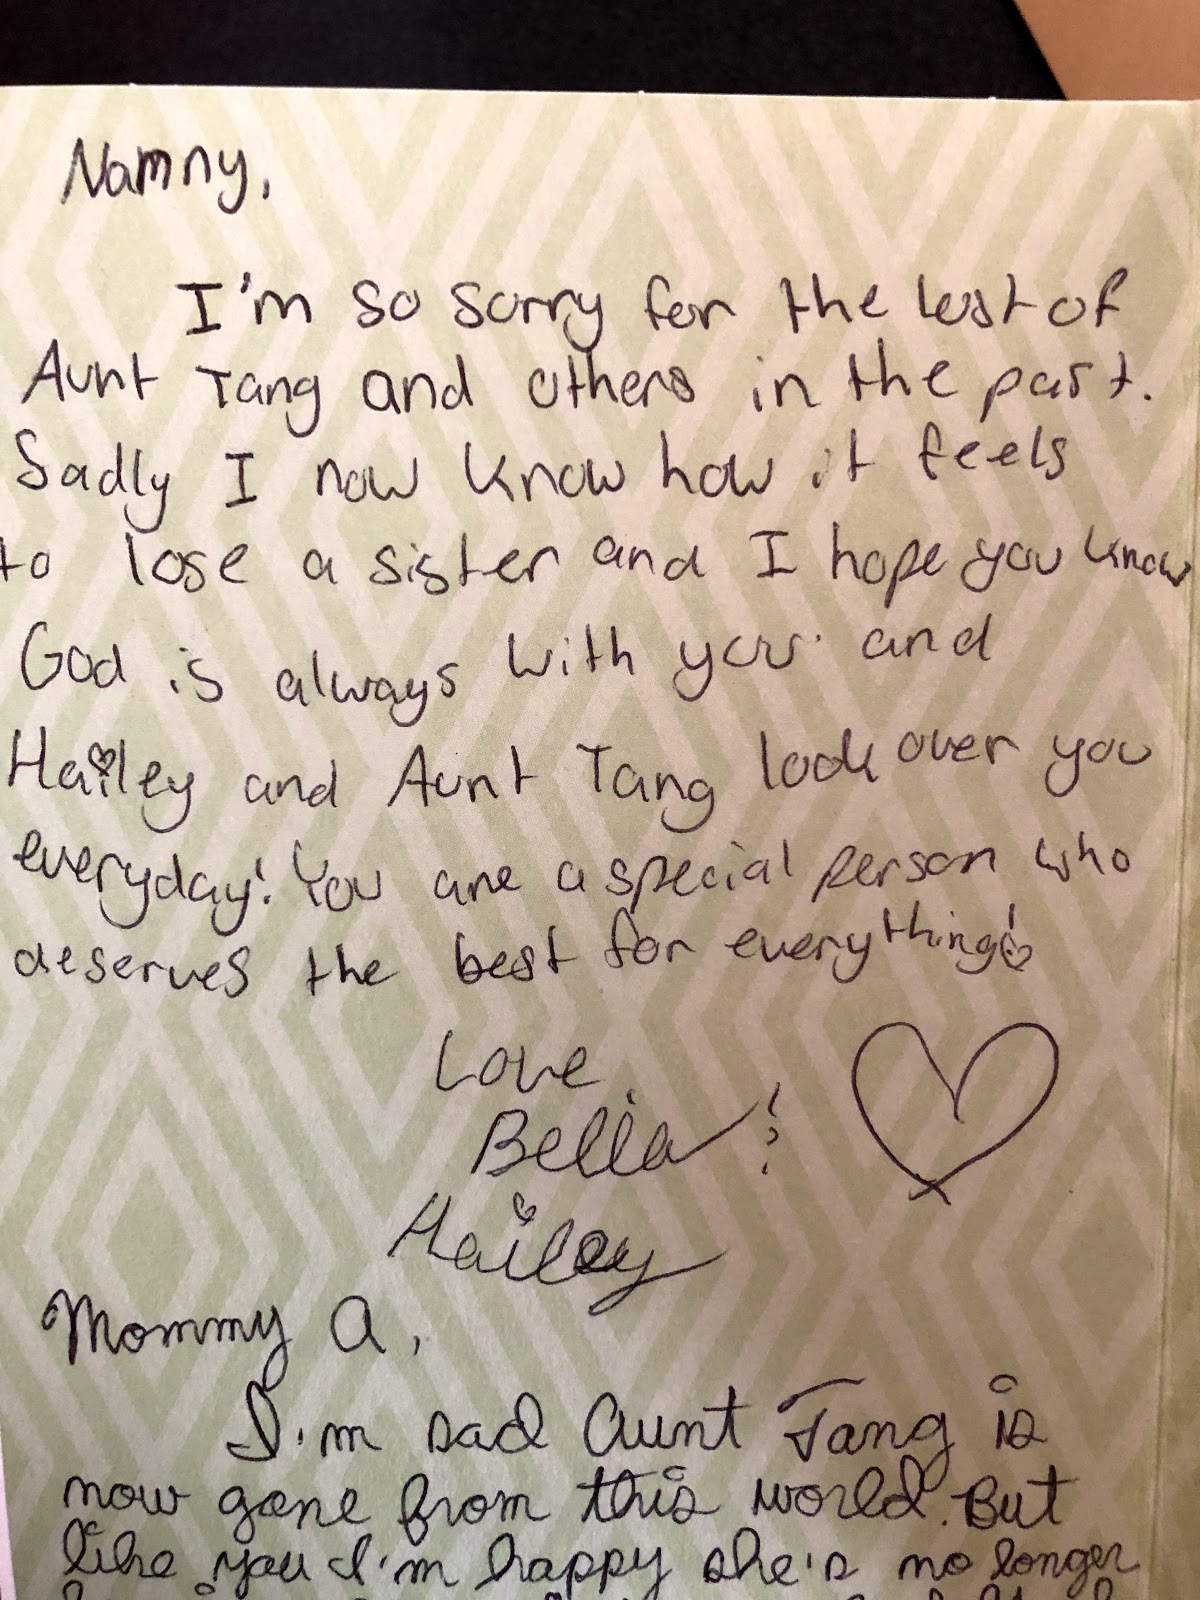 Nammy,
I'm so sorry for the lost of
Aunt Tang and others in the past.
Sadly I now know how it feels
to lose a sister and I hope you know
God is always with you and
Hailey and Aunt Tang look over you
everyday! You are a special person who
deserves the best for everything!
Love,
Bella &
Hailey
Mommy A,
I'm sad Aunt Tang is
now gone from this world. But
like you I'm happy she's no longer